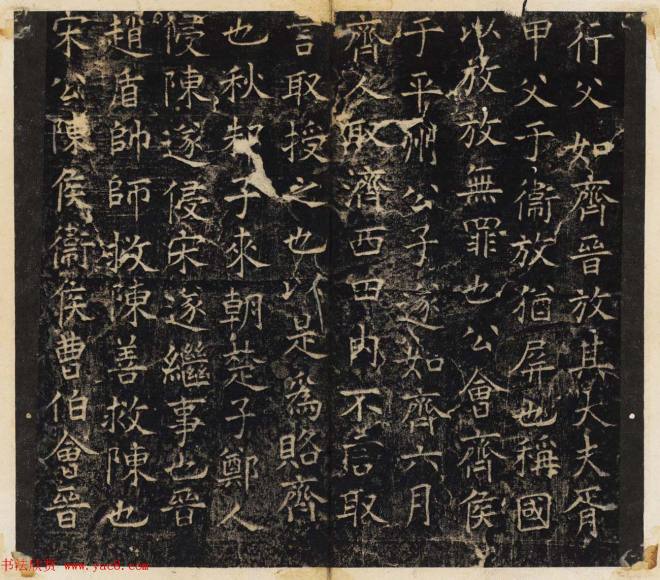 行父如齊晉放其大夫胥
甲父于衞放猶屏也稱國
以放放無罪也公會齊侯
于平州公子遂如齊六月
齊人取濟西田内不言取
言取授之也以是爲賂齊
也秋邾子來朝楚子鄭人
侵陳遂侵宋遂繼事也晉
趙盾帥師救陳善救陳也
宋公陳侯衞侯曹伯會晉
书法欣赏 www.yac8.com